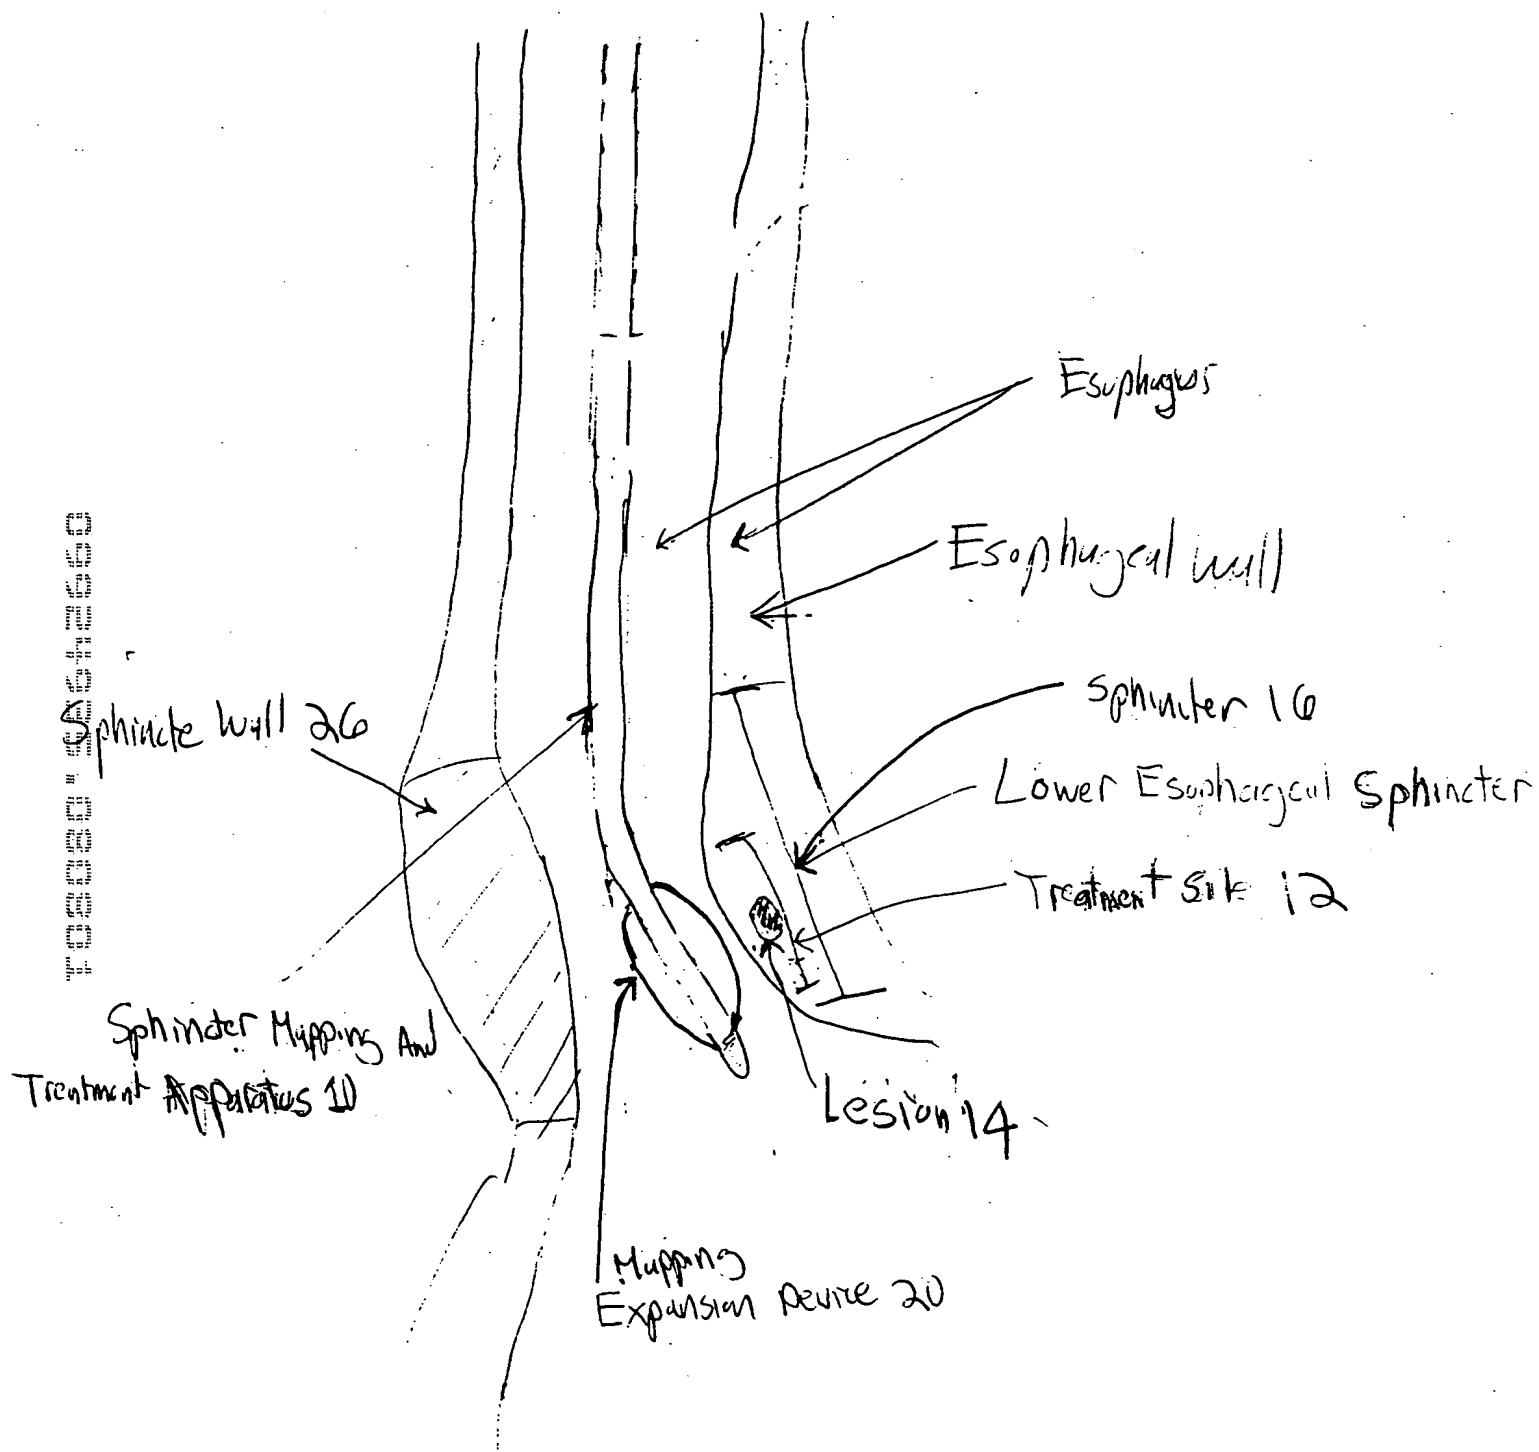 Esophagus
Esophageal wall
Sphincter 16
Sphincte Wall 26
Lower Esophageal Sphincter
Treatment Site 12
Sphincter Mapping And
Treatment Apparatus 10
Lesion 14
Mapping
Expansion Device 20